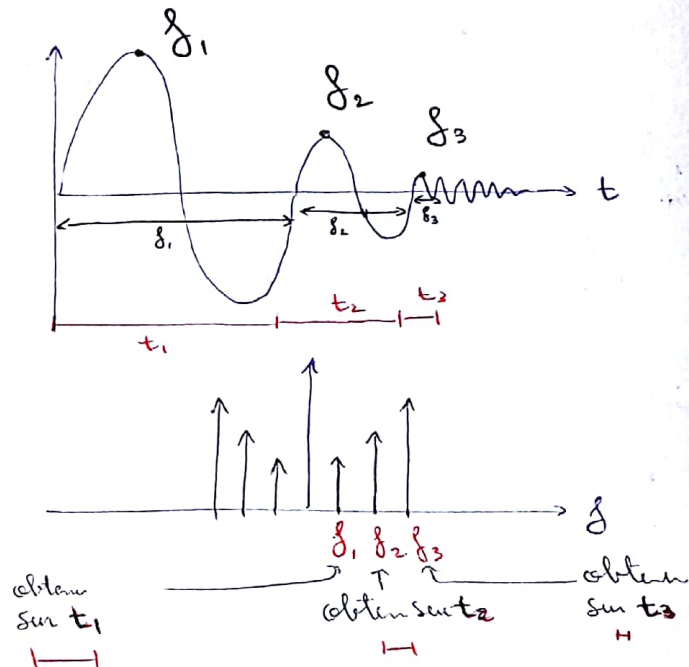 f₁
f₂
f₃
t
f₁
f₂
f₃
t₁
t₂
t₃
f
f₁ f₂ f₃
obtenu
sur t₁
obtenu sur t₂
obtenu
sur t₃